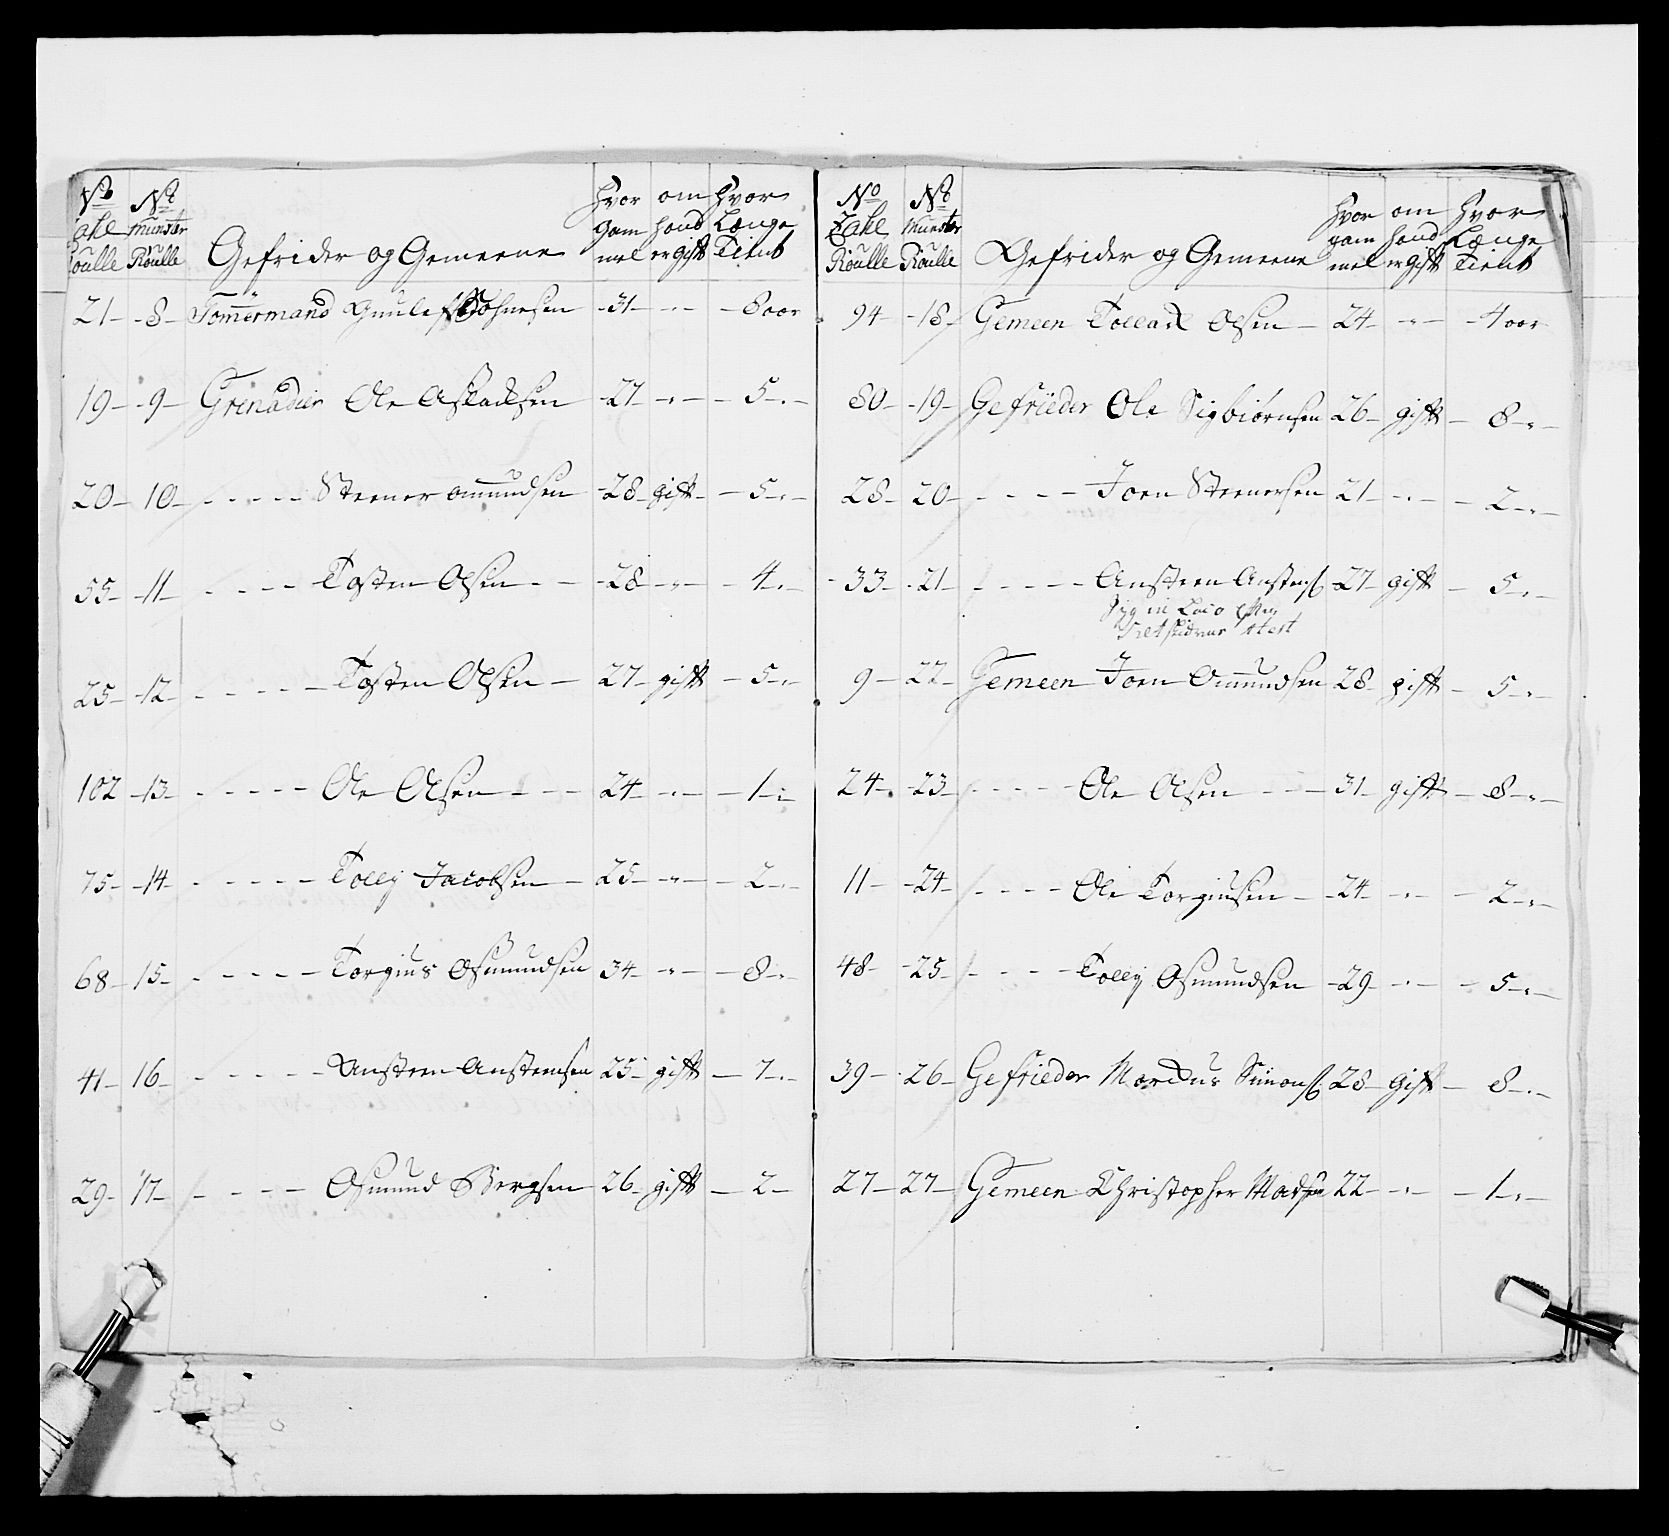 No Zahl Roulle | No Munster Roulle | Gefrider og Gemeene | hvor gammel | om hand er gift | hvor Længe Tient
21 - 8 - Tömmermand Gunlef Johnesen - 31 - " - 8 aar
19 - 9 - Grenadier Ole Aslachsen - 27 - " - 5 - " -
20 - 10 - - - - - Steener Amundsen - 28 - gift - 5 - " -
55 - 11 - - - - - Tosten Olsen - - 28 - " - 4 - " -
25 - 12 - - - - - Tosten Olsen - 27 - gift - 5 - " -
102 - 13 - - - - - Ole Olsen - - - 24 - " - 1 - " -
75 - 14 - - - - - Tolly Jacobsen - 25 - " - 2 - " -
68 - 15 - - - - - Torgius Osmundsen 34 - " - 8 - " -
41 - 16 - - - - - Ansteen Ansteensen 25 - gift - 7 - " -
29 - 17 - - - - - Osmund Bergsen 26 - gift - 2 -
No Zahl Roulle | No Munster Roulle | Gefrider og Gemeene | hvor gammel | om hand er gift | hvor Længe Tient
94 - 18 - Gemeen Tollack Olsen - 24 - " - 4 aar
80 - 19 - Gefrieder Ole Sigbiørnsen 26 - gift - 8 - " -
28 - 20 - - - - - Joen Steenersen 21 - " - 2 - " -
33 - 21 - - - - - Ansteen Anstens: 27 - gift - 5 - " -
Syg in Loco efter
attest
9 - 22 - Gemeen Joen Amundsen 28 - gift - 5 - " -
24 - 23 - - - - - Ole Olsen - - - 31 - gift - 8 - " -
11 - 24 - - - - - Ole Torgiusen - 24 - " - 2 - " -
48 - 25 - - - - - Tolly Osmundsen - 29 - " - 5 - " -
39 - 26 - Gefrieder Marcus Simons: 28 - gift - 8 - " -
27 - 27 - Gemeen Christopher Madsen 22 - " - 1 - " -